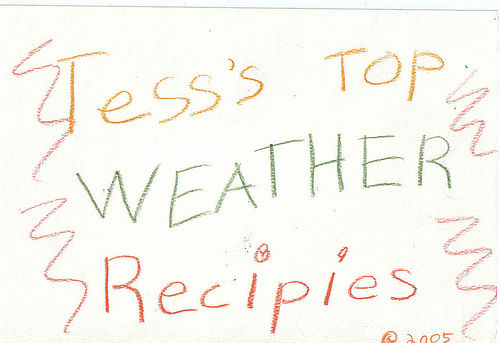 Tess's TOP
WEATHER
Recipies
© 2005